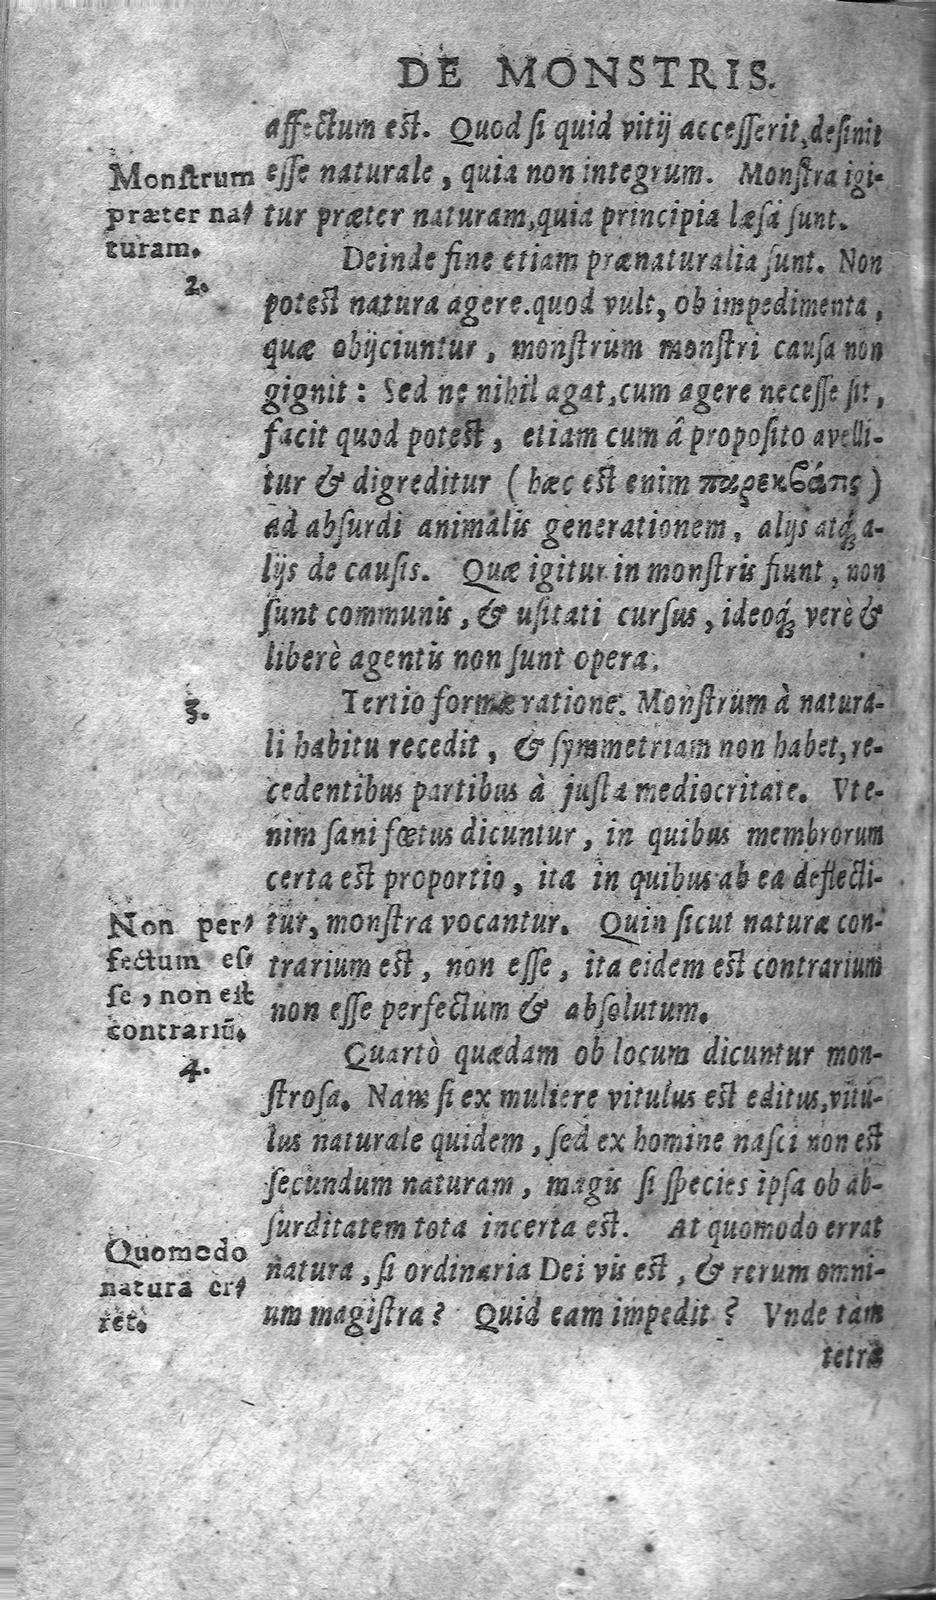 DE MONSTRIS.
affectum est. Quod ſi quid vitij acceſſerit, deſinit
eſſe naturale, quia non integrum. Monſtra igi-
tur præter naturam, quia principia læſa ſunt.
Monſtrum
præter na-
turam.
2.
Deinde fine etiam prænaturalia ſunt. Non
potest natura agere. quod vult, ob impedimenta,
quæ obijciuntur, monſtrum monſtri cauſa non
gignit: Sed ne nihil agat, cum agere neceſſe ſit,
facit quod potest, etiam cum â propoſito avelli-
tur & digreditur (hæc est enim παρεκβάσις)
ad abſurdi animalis generationem, alijs atq́; a-
lijs de cauſis. Quæ igitur in monſtris fiunt, non
ſunt communis, & uſitati curſus, ideoq́; verè &
liberè agentis non ſunt opera.
3.
Tertio formæ ratione. Monſtrum à natura-
li habitu recedit, & ſymmetriam non habet, re-
cedentibus partibus à juſta mediocritate. Vt e-
nim ſani fœtus dicuntur, in quibus membrorum
certa est proportio, ita in quibus ab ea deflecti-
tur, monſtra vocantur. Quin ſicut naturæ con-
trarium est, non eſſe, ita eidem est contrarium
non eſſe perfectum & abſolutum.
Non per-
fectum eſ-
ſe, non eſt
contrariū.
4.
Quartò quædam ob locum dicuntur mon-
ſtroſa. Nam ſi ex muliere vitulus est editus, vitu-
lus naturale quidem, ſed ex homine naſci non est
ſecundum naturam, magis ſi ſpecies ipſa ob ab-
ſurditatem tota incerta est. At quomodo errat
natura, ſi ordinaria Dei vis est, & rerum omni-
um magiſtra? Quid eam impedit? Vnde tàm
Quomodo
natura er-
ret.
tetræ